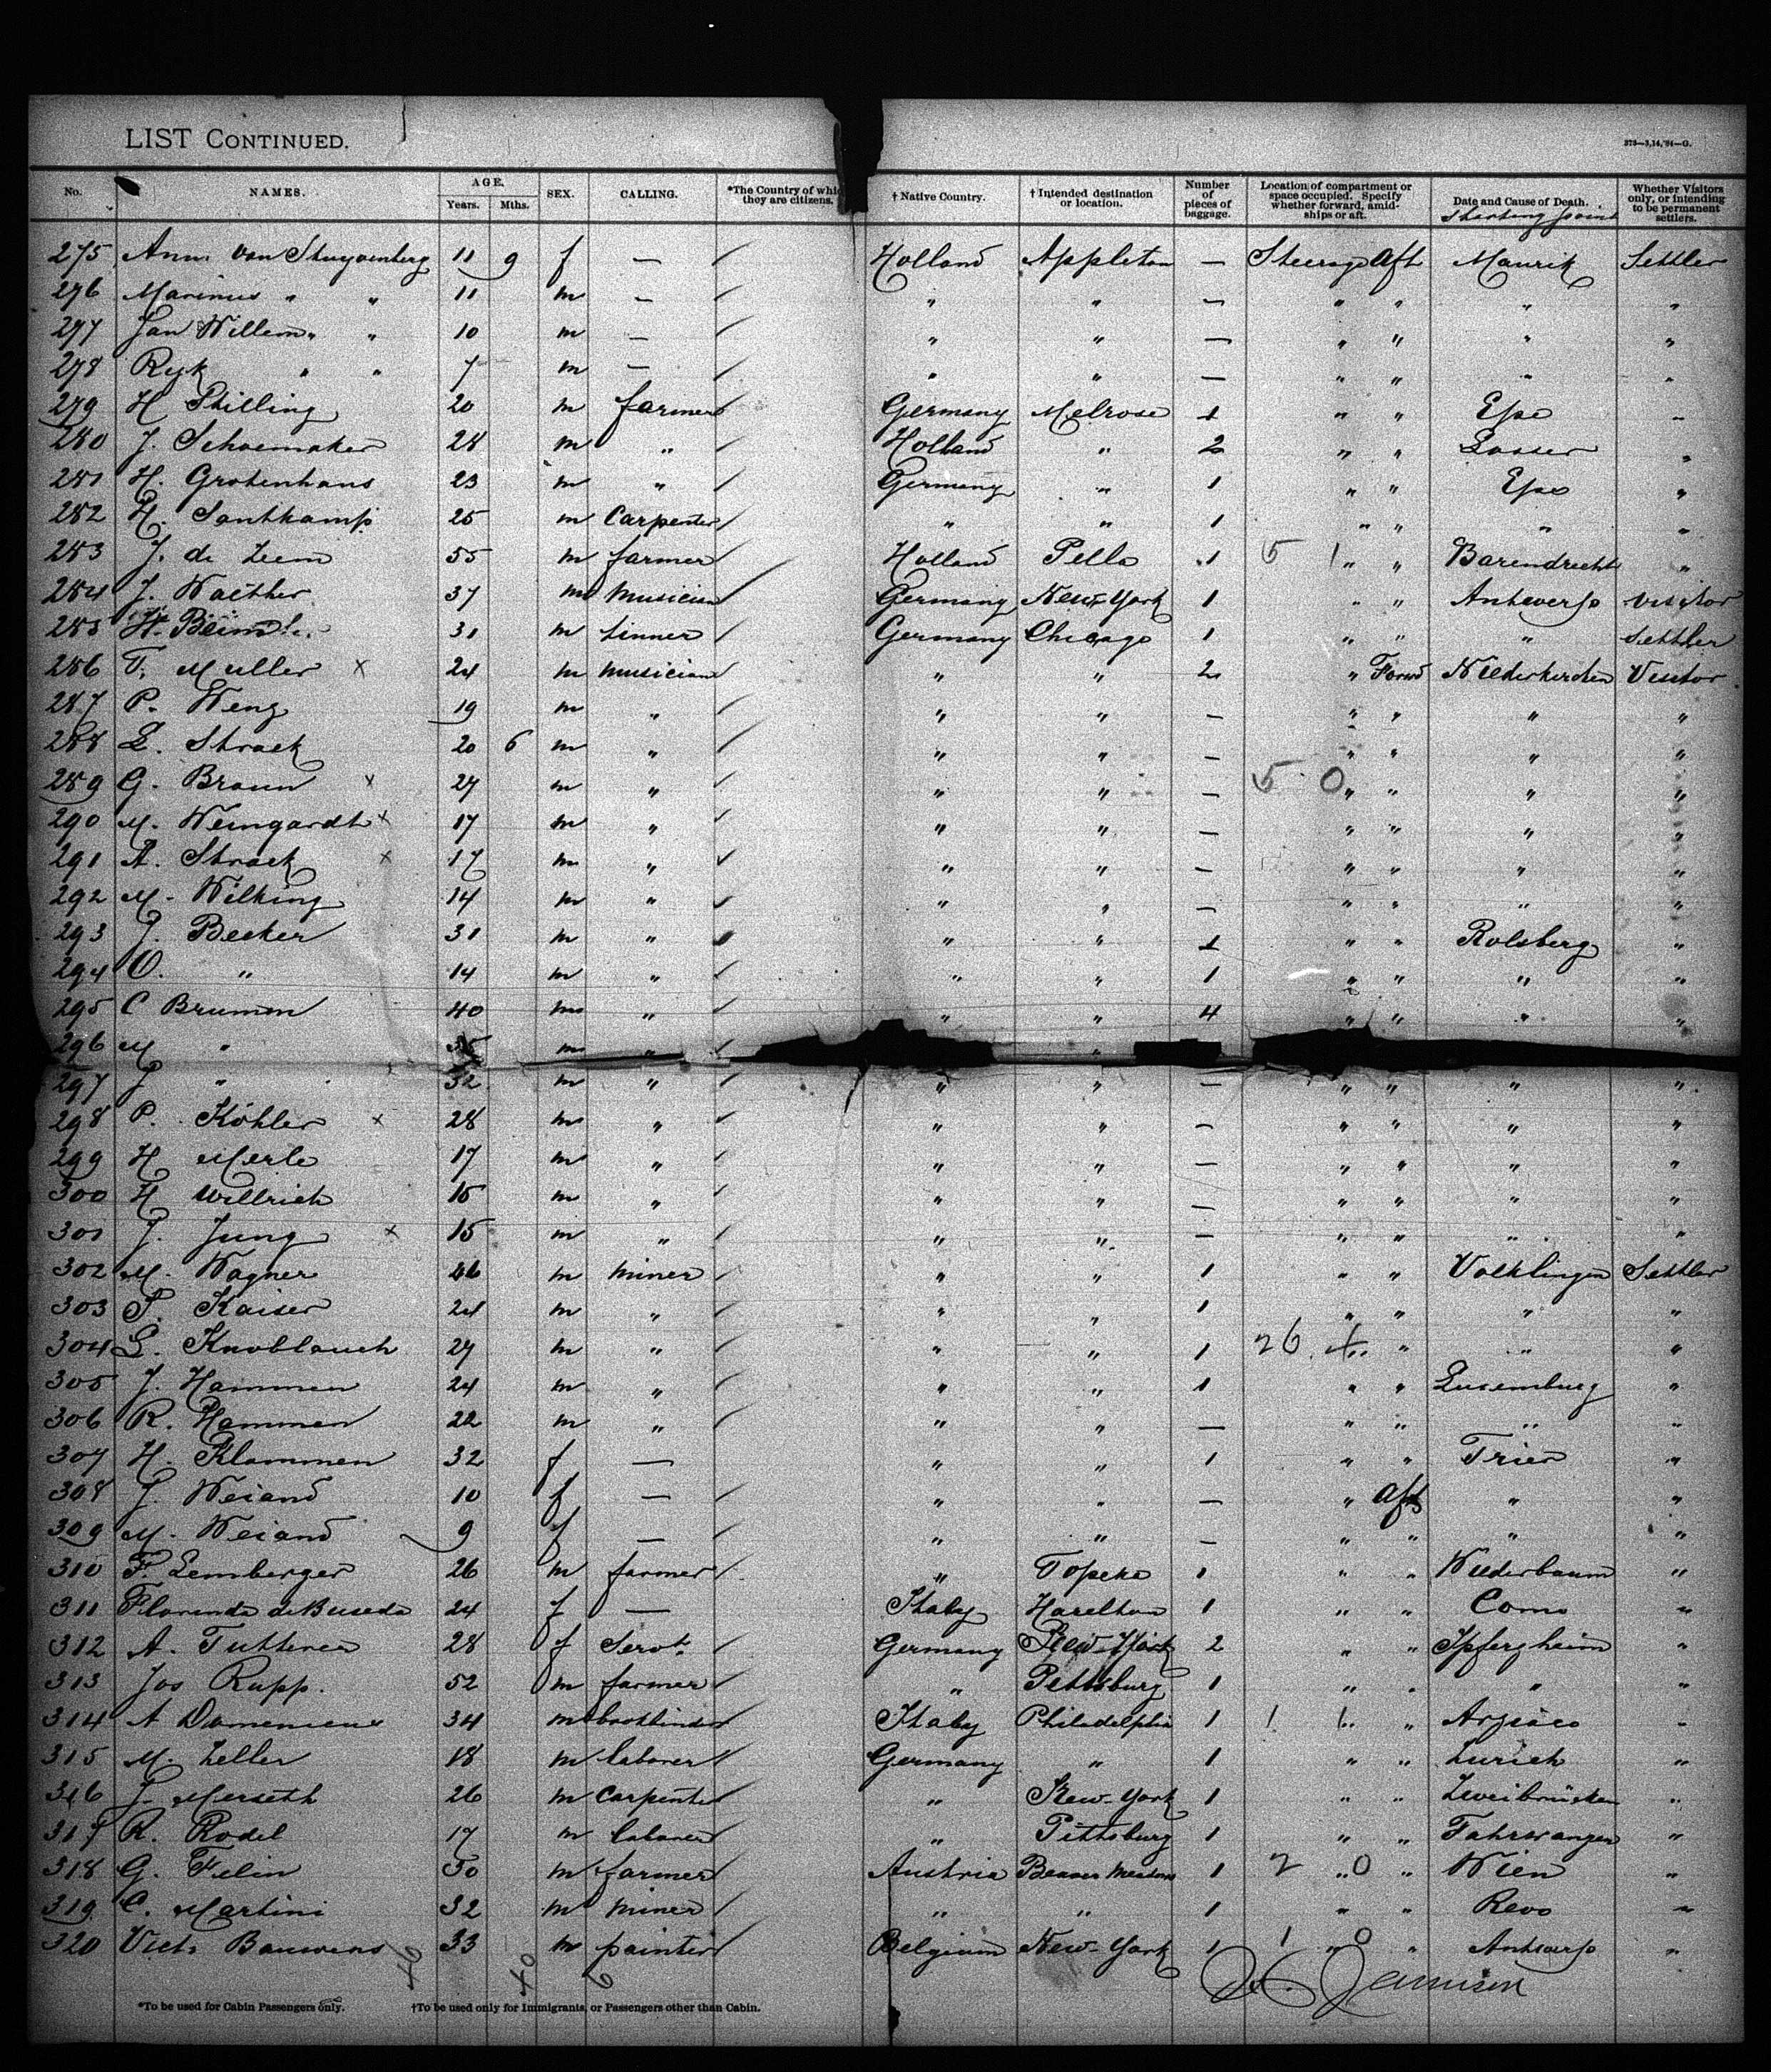 LIST CONTINUED.
373—3,14,'94—G.
No. NAMES. AGE. Years. Mths. SEX. CALLING. *The Country of whi they are citizens. † Native Country. † Intended destination or location. Number of pieces of baggage. Location of compartment or space occupied. Specify whether forward, amidships or aft. Date and Cause of Death. Starting point Whether Visitors only, or intending to be permanent settlers.
275 Anna van 11 9 f — Holland Appleton — Steerage Aft Maurik Settler
276 Marinus " " 11 m — " " — " " " "
277 Jan Willem " " 10 m — " " — " " " "
278 Ryk " " 7 m — " " — " " " "
279 H 20 m farmer Germany Melrose 1 " " Epe "
280 J. Schoemaker 28 m " Holland " 2 " " Losser "
281 H. Grotenhans 23 m " Germany " 1 " " Epe "
282 H. Santkamp 25 m Carpenter " " 1 " " " "
283 J. de Leem 55 m farmer Holland Pella 1 5 1 " " Barendrecht "
284 J. Walther 37 m Musician Germany New-York 1 " " Antwerp visitor
285 H. 31 m tinner Germany Chicago 1 " " " Settler
286 T. Muller x 24 m musician " " 2 " Forwd Niederkirchen Visitor
287 P. Weng 19 m " " " — " " " "
288 L. Strack 20 6 m " " " — " " " "
289 G. Braun x 27 m " " " — 5 0 " " " "
290 M. Weingardt x 17 m " " " — " " " "
291 A. Strack x 17 m " " " — " " " "
292 M. Wilking 14 m " " " — " " " "
293 J. Becker 31 m " " " 1 " " Rolsberg "
294 O. " 14 m " " " 1 " " " "
295 C Brumm 40 m " " " 4 " " " "
296 M " m " "
297 J " 32 m " " " — " " " "
298 P. Köhler x 28 m " " " — " " " "
299 H Merle 17 m " " " — " " " "
300 H Willrich 15 m " " " — " " " "
301 J. Jung x 15 m " " " — " " " "
302 M. Wagner 46 m miner " " 1 " " Volklingen Settler
303 P. Kaiser 24 m " " " 1 " " " "
304 L. Knoblauch 27 m " " " 1 26 " " " "
305 J. Hammen 24 m " " " 1 " " Luxemburg "
306 R. Hammen 22 m " " " — " " " "
307 H. Klammen 32 f — " " 1 " " Trier "
308 J. Weiand 10 f — " " — " Aft " "
309 M. Weiand 9 f — " " — " " " "
310 F. Lemberger 26 m farmer " Topeka 1 " " Niederbaum "
311 Florinda de Buseda 24 f — Italy Hazelton 1 " " Como "
312 A. 28 f Servt. Germany New-York 2 " " "
313 Jos Rupp. 52 m farmer " Pittsburg 1 " " " "
314 A Domenicus 34 m bookbinder Italy Philadelphia 1 1 1 " " "
315 M. Zeller 18 m laborer Germany " 1 " " Zurich "
316 J. Merseth 26 m Carpenter " New-York 1 " " Zweibrücken "
317 R. Rodel 17 m laborer " Pittsburg 1 " " Fahrwangen "
318 G. Filin 30 m farmer Austria Beaver Meadow 1 2 " 0 " Wien "
319 C. Martini 32 m miner " " 1 " " Revo "
320 Vict. Bauwens 33 m painter Belgium New-York 1 1 " 0 " Antwerp "
46 40 6
26 Jamison
*To be used for Cabin Passengers only. †To be used only for Immigrants, or Passengers other than Cabin.